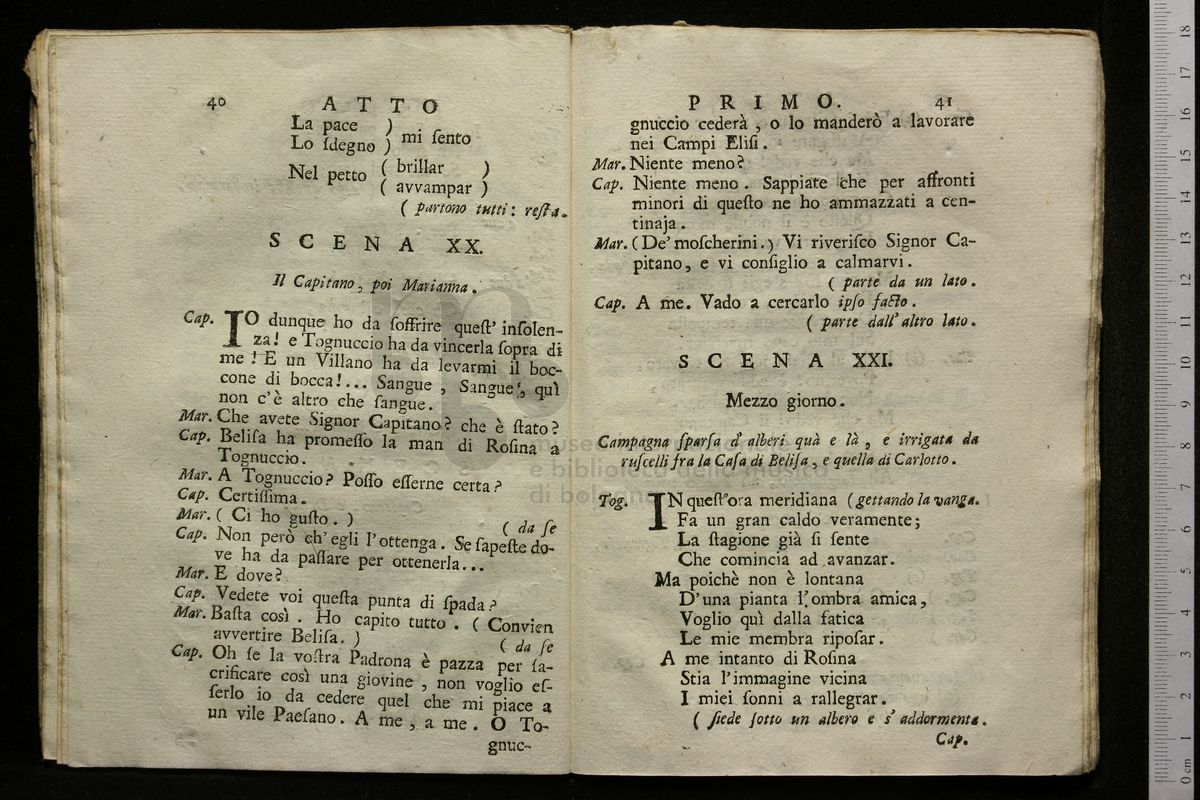 40 ATTO
La pace )
Lo ſdegno ) mi ſento
Nel petto ( brillar )
( avvampar )
( partono tutti: reſta.
SCENA XX.
Il Capitano, poi Marianna.
Cap. IO dunque ho da ſoffrire queſt' inſolen-
za! e Tognuccio ha da vincerla ſopra di
me! E un Villano ha da levarmi il boc-
cone di bocca!... Sangue, Sangue!, quì
non c'è altro che ſangue.
Mar. Che avete Signor Capitano? che è ſtato?
Cap. Beliſa ha promeſſo la man di Roſina a
Tognuccio.
Mar. A Tognuccio? Poſſo eſſerne certa?
Cap. Certiſſima.
Mar. ( Ci ho guſto. ) ( da ſe
Cap. Non però ch'egli l'ottenga. Se ſapeſte do-
ve ha da paſſare per ottenerla...
Mar. E dove?
Cap. Vedete voi queſta punta di ſpada?
Mar. Baſta così. Ho capito tutto. ( Convien
avvertire Beliſa. ) ( da ſe
Cap. Oh ſe la voſtra Padrona è pazza per ſa-
crificare così una giovine, non voglio eſ-
ſerlo io da cedere quel che mi piace a
un vile Paeſano. A me, a me. O To-
gnuc-
PRIMO. 41
gnuccio cederà, o lo manderò a lavorare
nei Campi Eliſi.
Mar. Niente meno?
Cap. Niente meno. Sappiate che per affronti
minori di queſto ne ho ammazzati a cen-
tinaja.
Mar. (De' moſcherini.) Vi riveriſco Signor Ca-
pitano, e vi conſiglio a calmarvi.
( parte da un lato.
Cap. A me. Vado a cercarlo ipſo facto.
( parte dall' altro lato.
SCENA XXI.
Mezzo giorno.
Campagna ſparſa d' alberi quà e là, e irrigata da
ruſcelli fra la Caſa di Beliſa, e quella di Carlotto.
Tog. IN queſt'ora meridiana (gettando la vanga.
Fa un gran caldo veramente;
La ſtagione già ſi ſente
Che comincia ad avanzar.
Ma poichè non è lontana
D'una pianta l'ombra amica,
Voglio quì dalla fatica
Le mie membra ripoſar.
A me intanto di Roſina
Stia l'immagine vicina
I miei ſonni a rallegrar.
( ſiede ſotto un albero e s' addormenta.
Cap.
museo
e biblioteca della musica
di bologna
0 cm 1 2 3 4 5 6 7 8 9 10 11 12 13 14 15 16 17 18